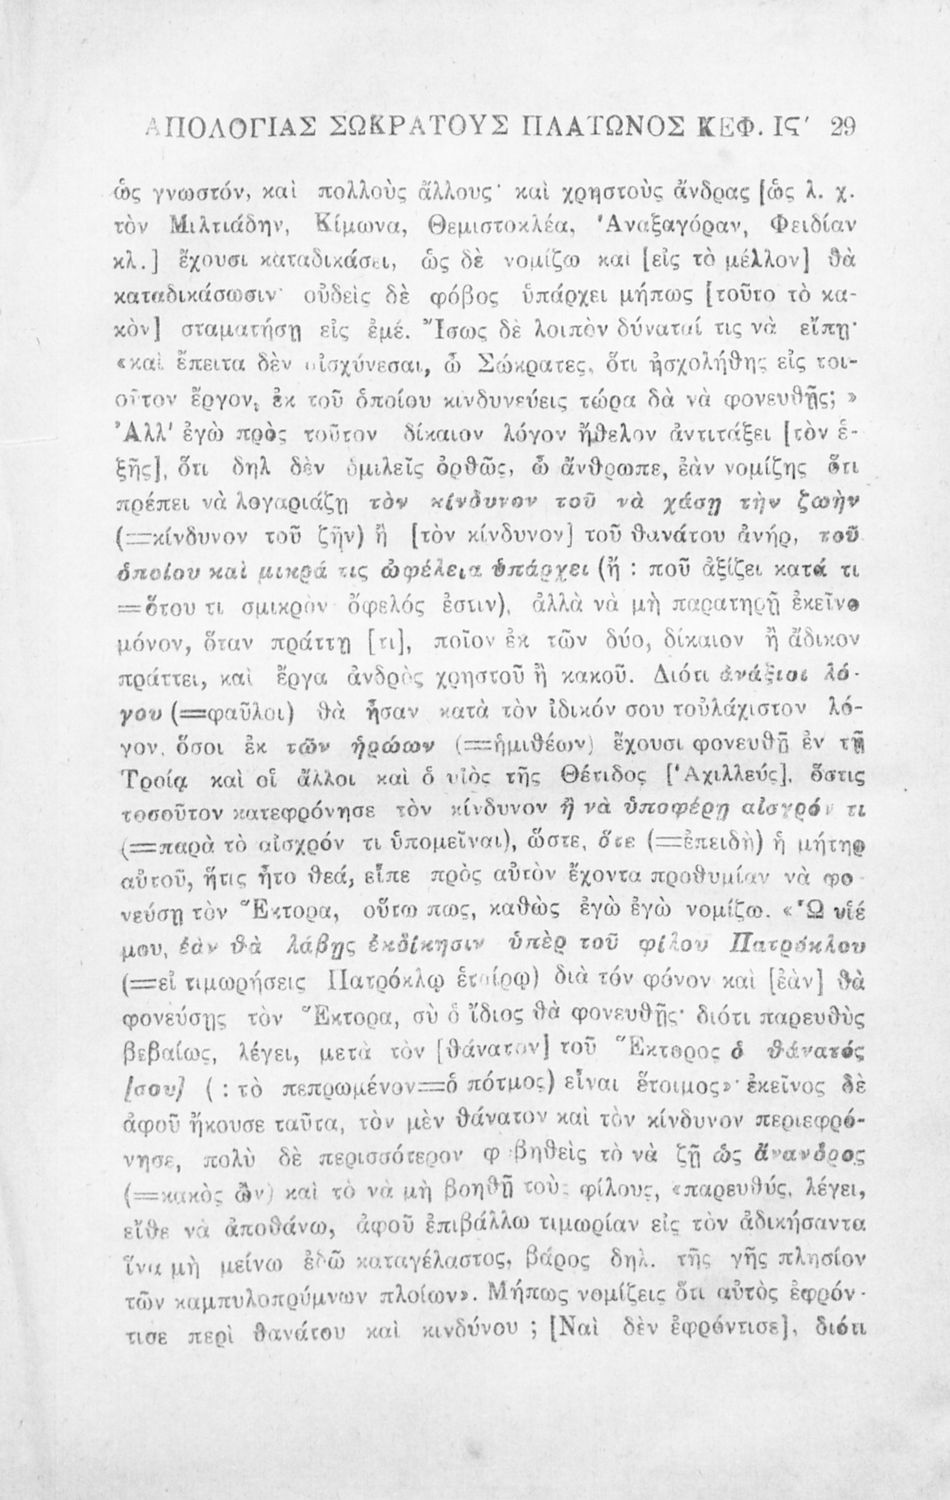 ΑΠΟΛΟΓΙΑΣ ΣΩΚΡΑΤΟΥΣ ΠΛΑΤΩΝΟΣ ΚΕΦ. Ιϛ′ 29
ὡς γνωστόν, καὶ πολλοὺς ἄλλους· καὶ χρηστοὺς ἄνδρας [ὡς λ. χ.
τὸν Μιλτιάδην, Κίμωνα, Θεμιστοκλέα, Ἀναξαγόραν, Φειδίαν
κλ.] ἔχουσι καταδικάσει, ὡς δὲ νομίζω καὶ [εἰς τὸ μέλλον] θὰ
καταδικάσωσιν· οὐδεὶς δὲ φόβος ὑπάρχει μήπως [τοῦτο τὸ κα-
κὸν] σταματήσῃ εἰς ἐμέ. Ἴσως δὲ λοιπὸν δύναταί τις νὰ εἴπῃ·
«καὶ ἔπειτα δὲν αἰσχύνεσαι, ὦ Σώκρατες, ὅτι ἠσχολήθης εἰς τοι-
οῦτον ἔργον, ἐκ τοῦ ὁποίου κινδυνεύεις τώρα δὰ νὰ φονευθῇς; »
Ἀλλ' ἐγὼ πρὸς τοῦτον δίκαιον λόγον ἤθελον ἀντιτάξει [τὸν ἑ-
ξῆς], ὅτι δηλ δὲν ὁμιλεῖς ὀρθῶς, ὦ ἄνθρωπε, ἐὰν νομίζῃς ὅτι
πρέπει νὰ λογαριάζῃ τὸν κίνδυνον τοῦ νὰ χάσῃ τὴν ζωὴν
(=κίνδυνον τοῦ ζῆν) ἢ [τὸν κίνδυνον] τοῦ θανάτου ἀνήρ, τοῦ
ὁποίου καὶ μικρά τις ὠφέλεια ὑπάρχει (ἢ : ποῦ ἀξίζει κατά τι
=ὅτου τι σμικρὸν ὄφελός ἐστιν), ἀλλὰ νὰ μὴ παρατηρῇ ἐκεῖνο
μόνον, ὅταν πράττῃ [τι], ποῖον ἐκ τῶν δύο, δίκαιον ἢ ἄδικον
πράττει, καὶ ἔργα ἀνδρὸς χρηστοῦ ἢ κακοῦ. Διότι ἀνάξιοι λό-
γου (=φαῦλοι) θὰ ἦσαν κατὰ τὸν ἰδικόν σου τοὐλάχιστον λό-
γον, ὅσοι ἐκ τῶν ἡρώων (=ἡμιθέων) ἔχουσι φονευθῇ ἐν τῇ
Τροίᾳ καὶ οἱ ἄλλοι καὶ ὁ υἱὸς τῆς Θέτιδος [Ἀχιλλεύς], ὅστις
τοσοῦτον κατεφρόνησε τὸν κίνδυνον ἢ νὰ ὑποφέρῃ αἰσχρόν τι
(=παρὰ τὸ αἰσχρόν τι ὑπομεῖναι), ὥστε, ὅτε (=ἐπειδὴ) ἡ μήτηρ
αὐτοῦ, ἥτις ἦτο θεά, εἶπε πρὸς αὐτὸν ἔχοντα προθυμίαν νὰ φο
νεύσῃ τὸν Ἕκτορα, οὕτω πως, καθὼς ἐγὼ ἐγὼ νομίζω. «Ὦ υἱέ
μου, ἐὰν θὰ λάβῃς ἐκδίκησιν ὑπὲρ τοῦ φίλου Πατρόκλου
(=εἰ τιμωρήσεις Πατρόκλῳ ἑταίρῳ) διὰ τόν φόνον καὶ [ἐὰν] θὰ
φονεύσῃς τὸν Ἕκτορα, σὺ ὁ ἴδιος θὰ φονευθῇς· διότι παρευθὺς
βεβαίως, λέγει, μετὰ τὸν [θάνατον] τοῦ Ἕκτορος ὁ θάνατός
[σου] ( : τὸ πεπρωμένον=ὁ πότμος) εἶναι ἕτοιμος»· ἐκεῖνος δὲ
ἀφοῦ ἤκουσε ταῦτα, τὸν μὲν θάνατον καὶ τὸν κίνδυνον περιεφρό-
νησε, πολὺ δὲ περισσότερον φοβηθεὶς τὸ νὰ ζῇ ὡς ἄνανδρος
(=κακὸς ὢν) καὶ τὸ νὰ μὴ βοηθῇ τοὺς φίλους, «παρευθύς, λέγει,
εἴθε νὰ ἀποθάνω, ἀφοῦ ἐπιβάλλω τιμωρίαν εἰς τὸν ἀδικήσαντα
ἵνα μὴ μείνω ἐδῶ καταγέλαστος, βάρος δηλ. τῆς γῆς πλησίον
τῶν καμπυλοπρύμνων πλοίων». Μήπως νομίζεις ὅτι αὐτὸς ἐφρόν-
τισε περὶ θανάτου καὶ κινδύνου ; [Ναὶ δὲν ἐφρόντισε], διότι